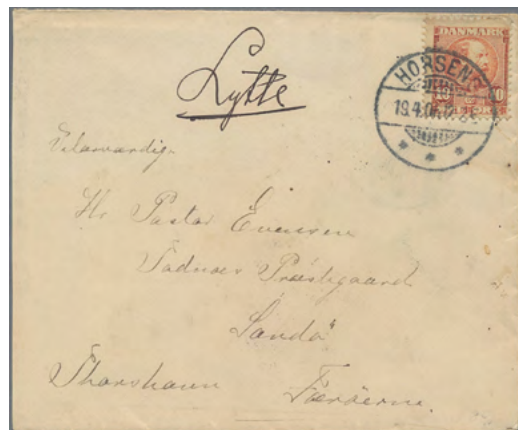 DANMARK
HORSENS
19.4.0
Lytte
Velærværdig
Hr Pastor Evensen
Præstegaard
Sandø
Thorshavn Færøerne.